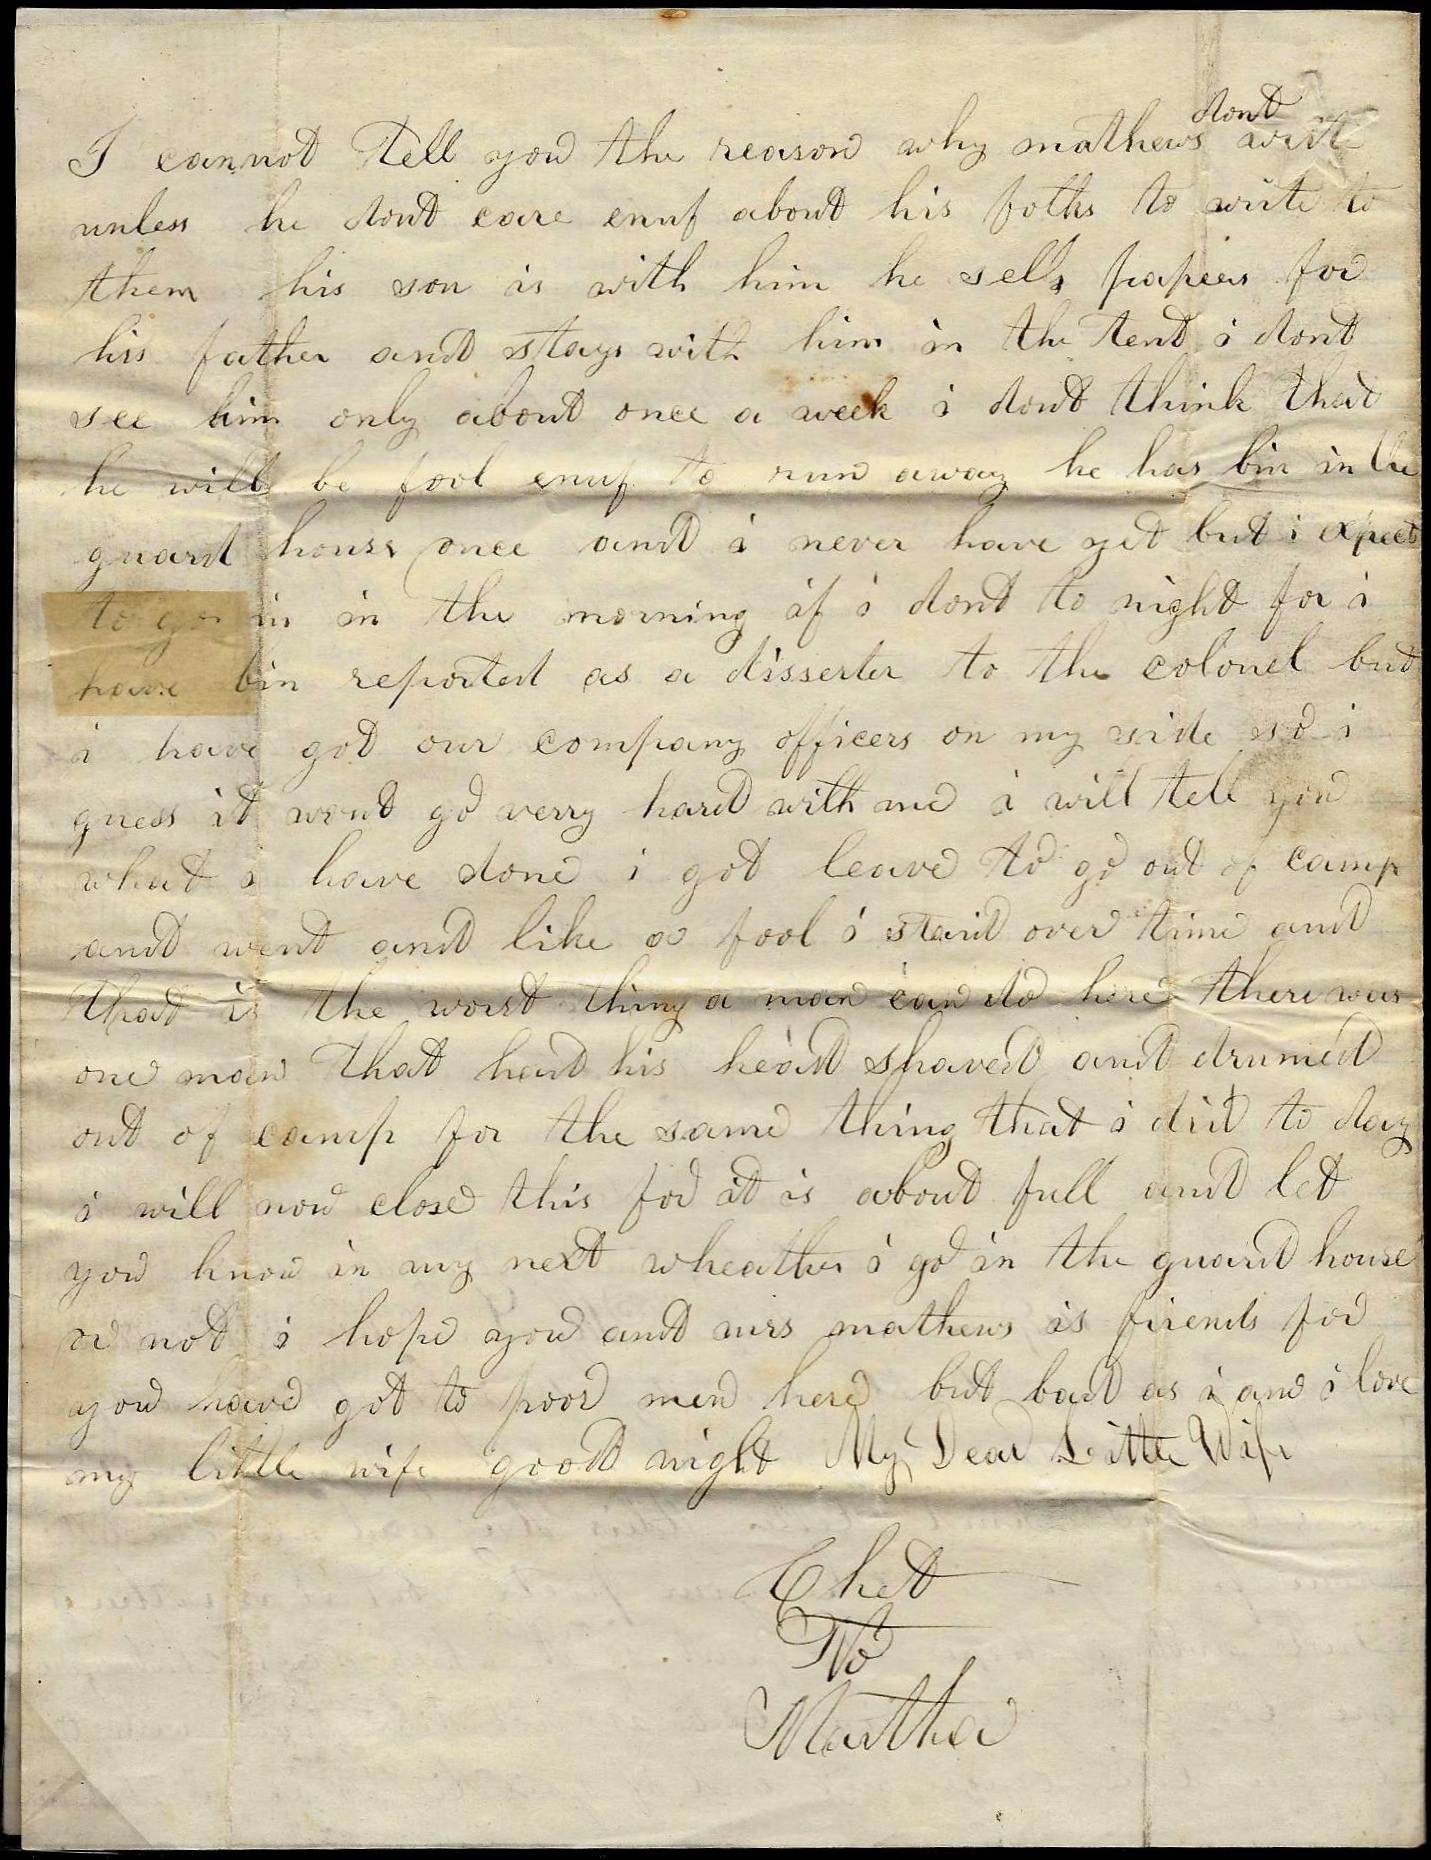 I cannot Tell you the reason why mathews dont write
unless he dont care enuf about his folks to write to
them his son is with him he sells papers for
his father and stays with him in the tent i dont
see him only about once a week i dont think that
he will be fool enuf to run away he has bin in the
guard house once and i never have yet but i expect
to go in in the morning if i dont to night for i
have bin reported as a disserter to the colonel but
i have got our company officers on my side so i
guess it wont go verry hard with me i will tell you
what i have done i got leave to go out of camp
and went and like a fool i staid over time and
that is the worst thing a man can do here there was
one man that had his head shaved and drumed
out of camp for the same thing that i did to day
i will now close this for it is about full and let
you know in my next wheather i go in the guard house
or not i hope you and mrs mathews is firends for
you have got to poor men here but bad as i am i love
my little wife good night My Dear Little Wife
Chet
To
Martha